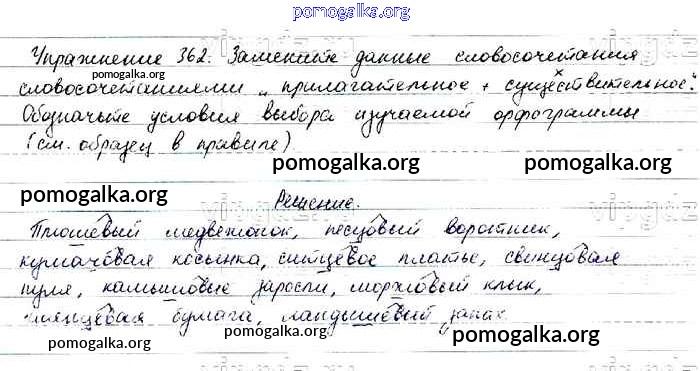 pomogalka.org
Упражнение 362. Замените данные словосочетания
pomogalka.org
словосочетаниями „прилагательное + существительное".
Обозначьте условия выбора изучаемой орфограммы
(см. образец в правиле).
pomogalka.org pomogalka.org
pomogalka.org
Решение.
Плюшевый медвежонок, песцовый воротник,
кумачовая косынка, ситцевое платье, свинцовая
пуля, камышовые заросли, моржовый клык,
глянцевая бумага, ландышевый запах
pomogalka.org pomogalka.org
pomogalka.org